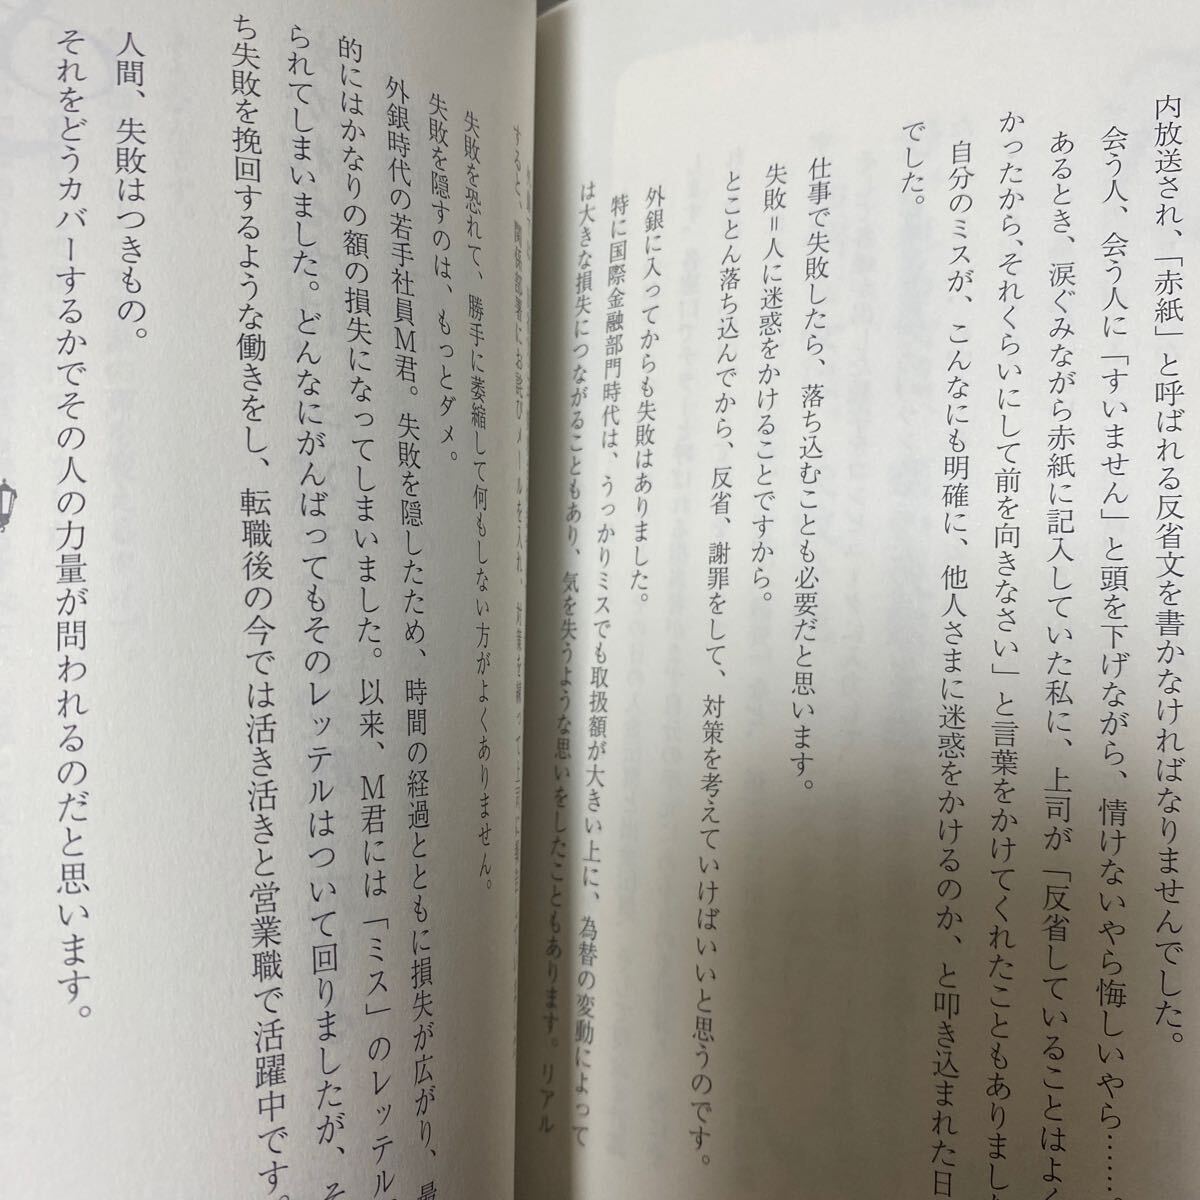 内放送され、「赤紙」と呼ばれる反省文を書かなければなりませんでした。
会う人、会う人に「すいません」と頭を下げながら、情けないやら悔しいやら……
あるとき、涙ぐみながら赤紙に記入していた私に、上司が「反省していることはよく
かったから、それくらいにして前を向きなさい」と言葉をかけてくれたこともありまし
自分のミスが、こんなにも明確に、他人さまに迷惑をかけるのか、と叩き込まれた日
でした。
仕事で失敗したら、落ち込むことも必要だと思います。
失敗＝人に迷惑をかけることですから。
とことん落ち込んでから、反省、謝罪をして、対策を考えていけばいいと思うのです。
外銀に入ってからも失敗はありました。
特に国際金融部門時代は、うっかりミスでも取扱額が大きい上に、為替の変動によって
は大きな損失につながることもあり、気を失うような思いをしたこともあります。リアル
すると、関係部署にお詫びメールを入れ、対策を練って上司に
失敗を恐れて、勝手に萎縮して何もしない方がよくありません。
失敗を隠すのは、もっとダメ。
外銀時代の若手社員Ｍ君。失敗を隠したため、時間の経過とともに損失が広がり、最
的にはかなりの額の損失になってしまいました。以来、Ｍ君には「ミス」のレッテル
られてしまいました。どんなにがんばってもそのレッテルはついて回りましたが、そ
ち失敗を挽回するような働きをし、転職後の今では活き活きと営業職で活躍中です。
人間、失敗はつきもの。
それをどうカバーするかでその人の力量が問われるのだと思います。